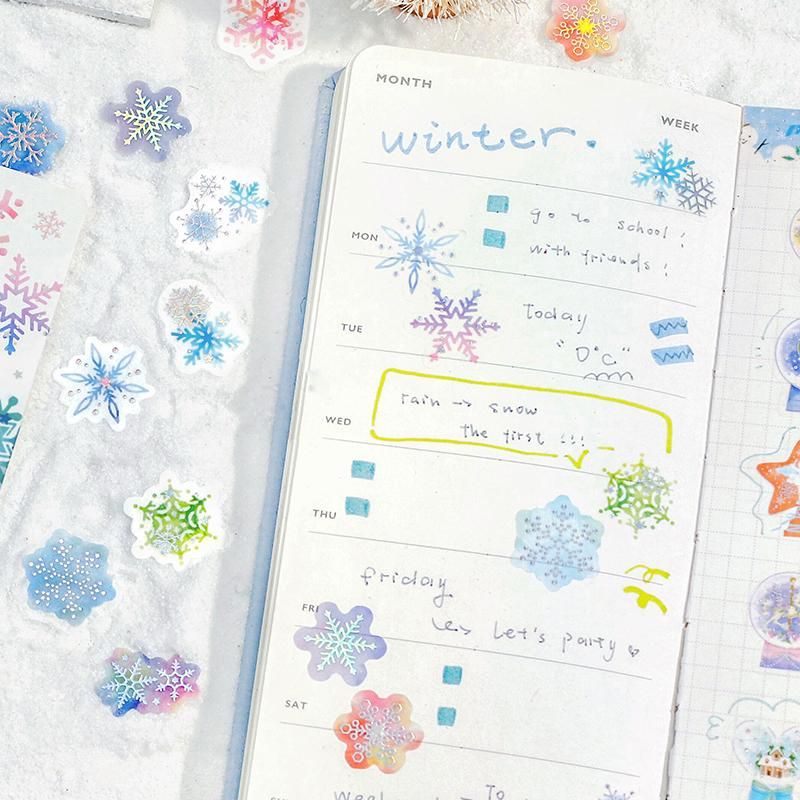 MONTH
WEEK
winter.
MON
go to school!
with friends!
TUE
today
"0°C"
WED
rain → snow
the first !!!
THU
friday
FRI
Let's party
SAT
To